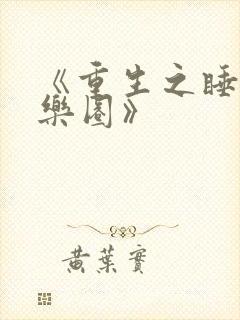 《重生之睡
樂園》
黃葉實